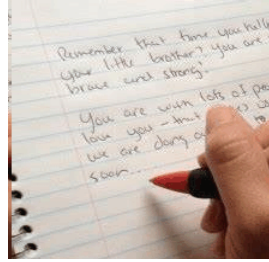 Remember that time you
your little brother? You are
brave and strong!
You are with lots of
love you – that
we are doing
soon...